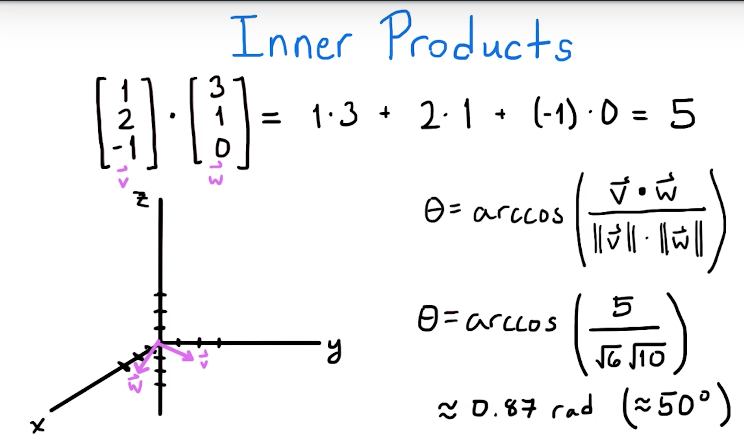 Inner Products
[1 2 -1] · [3 1 0] = 1·3 + 2·1 + (-1)·0 = 5
v⃗ w⃗
z
θ = arccos (v⃗ • w⃗ / ||v⃗|| · ||w⃗||)
θ = arccos (5 / √6 √10)
y
v⃗
w⃗
x
≈ 0.87 rad (≈50°)